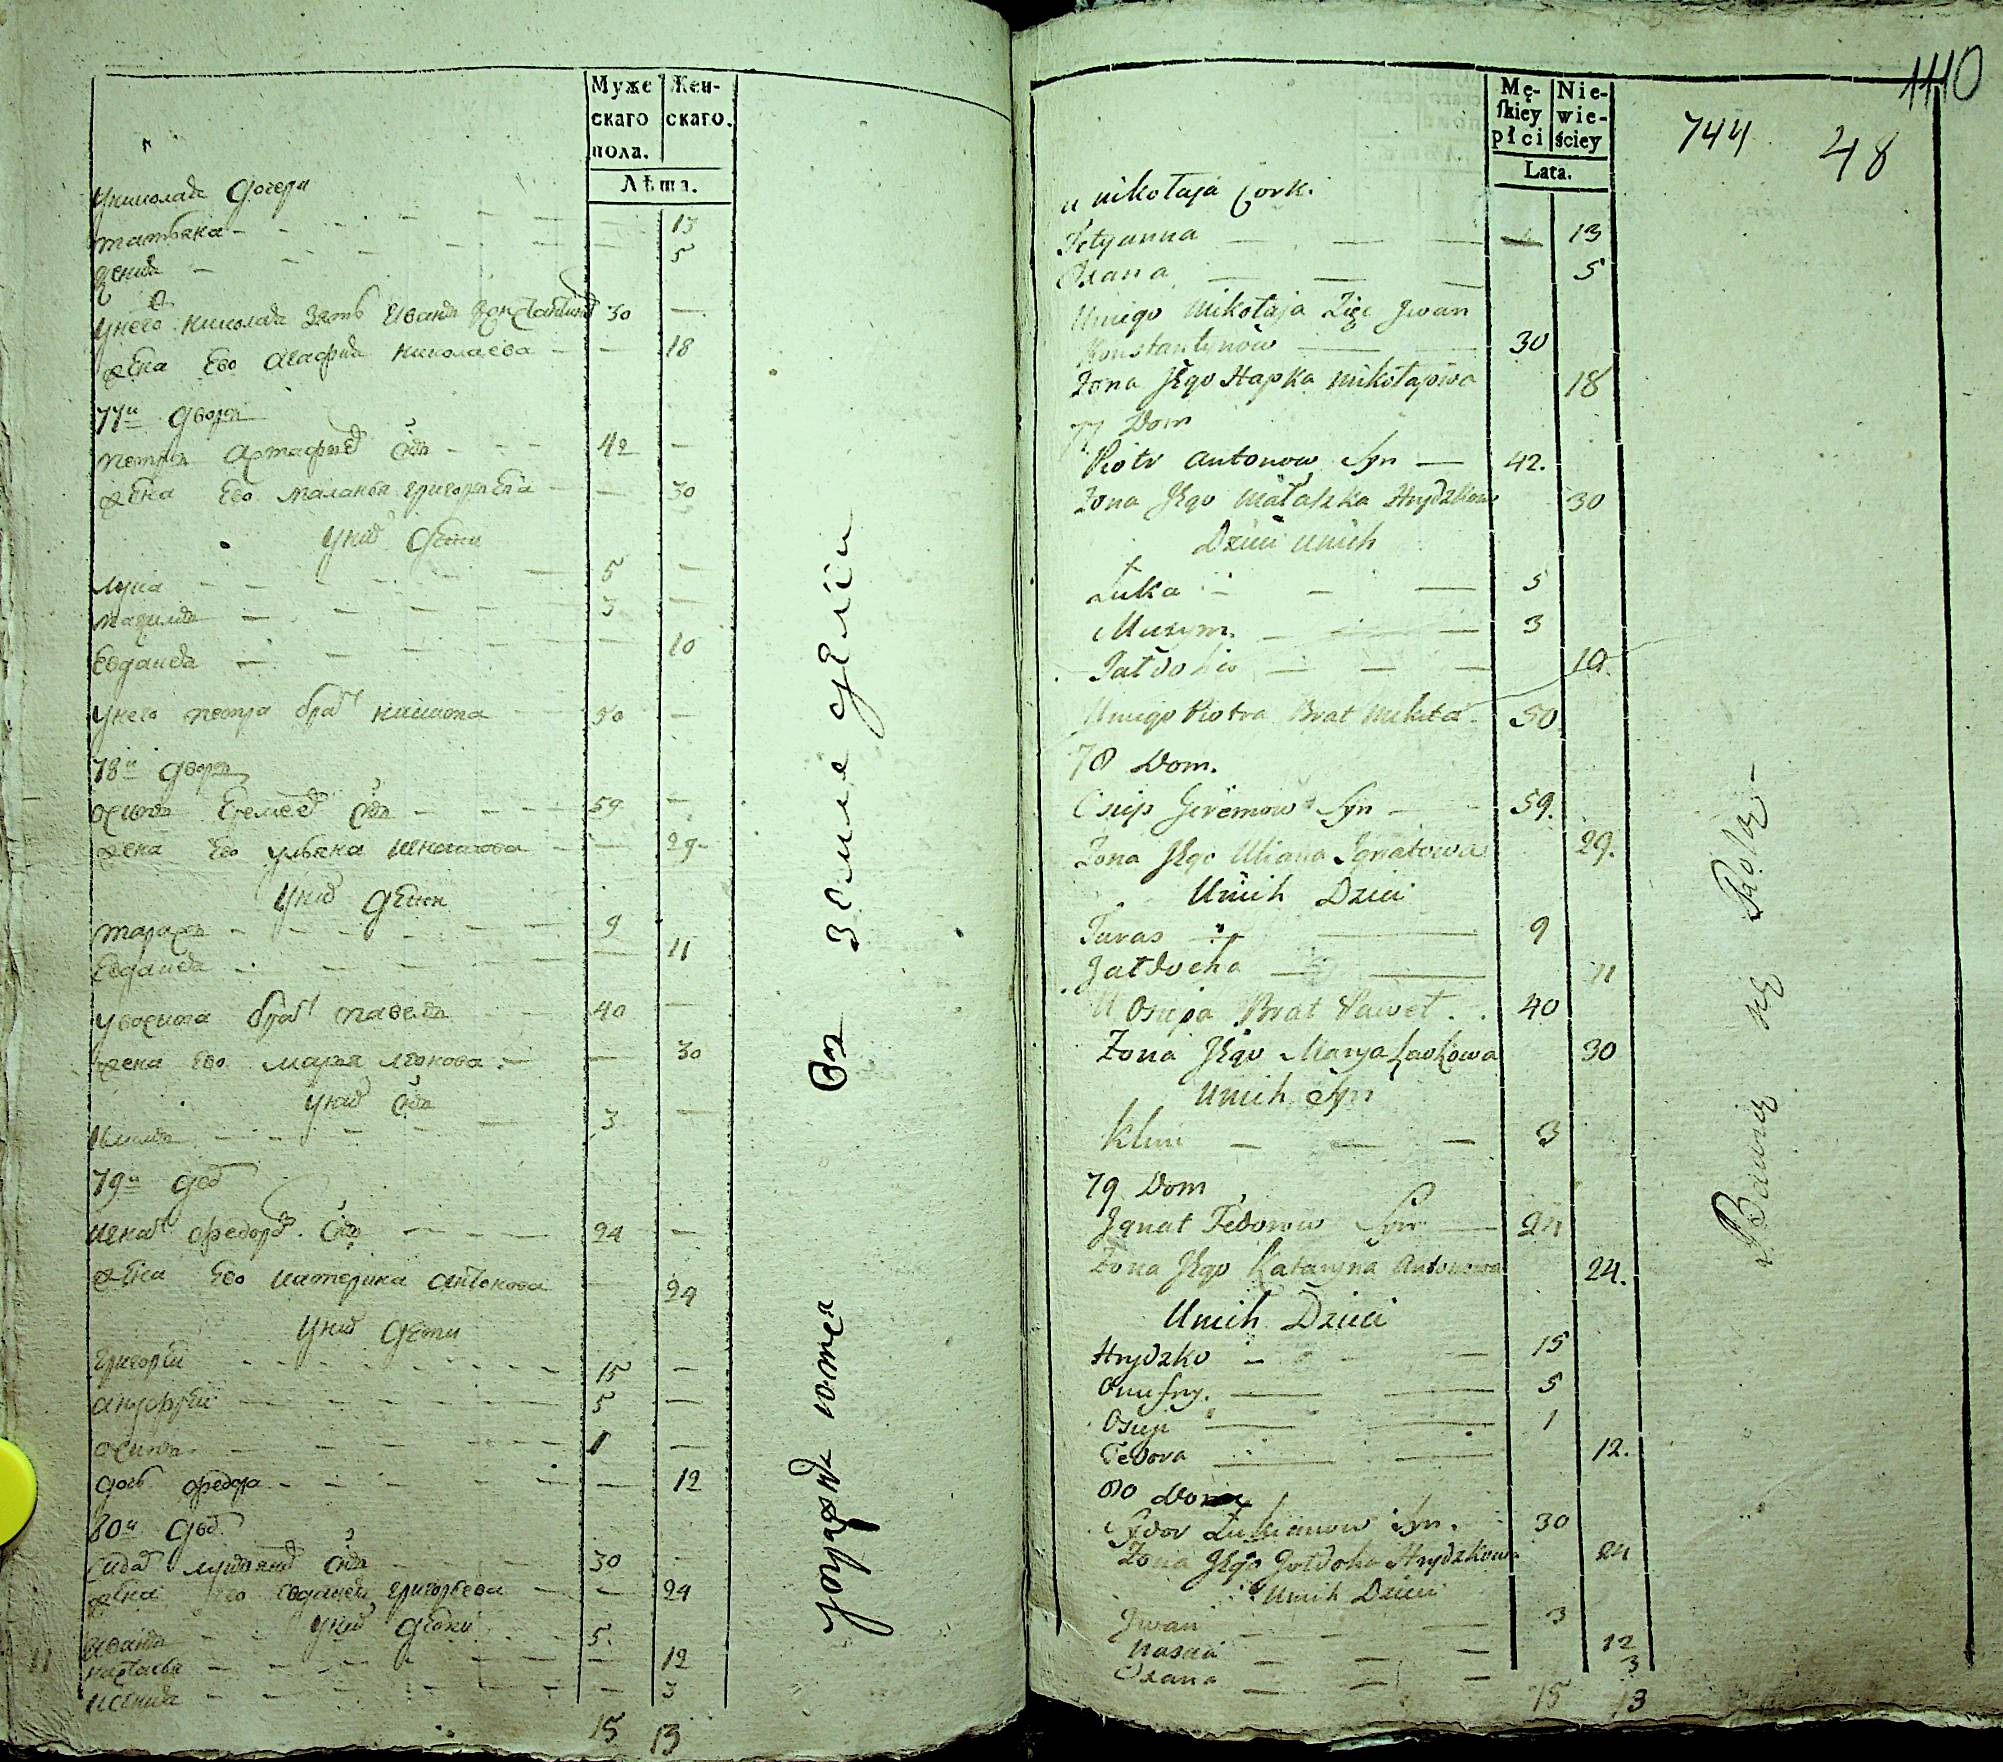 Муже
скаго
пола.
Жен-
скаго.
Лѣта.
Униколая дочери
татьяна 13
5
Унего николая зять Иванъ Константинов 30
жена Ево Агафия николаева 18
77й дворъ
петръ снъ 42
жена Ево маланья григорьева 30
Уних дети
лука 5
3
Евдокия 10
Унего петра брат никита 50
78й дворъ
осипъ Еремеев снъ 59
жена Ево ульяна игнатова 29
Уних дети
тарасъ 9
Евдокия 11
Уосипа брат павелъ 40
жена Ево марья леонова 30
Уних снъ
климъ 3
79й двор
игнат федоров снъ 24
жена Ево катерина антонова 24
Уних дети
григорей 15
5
осипъ 1
дочь федора 12
80й двор
сидор лукьянов снъ 30
жена Ево Евдокия григорьева 24
Уних дети
Иванъ 5
настасья 12
3
15 13
упражняются въ земледѣлiи
1110
744
48
Mę-
ſkiey
płci
Nie-
wie-
ściey
Lata.
u nikołaja Cork.
Tetyanna 13
Oxana 5
Uniego Mikołaja Zięc Jwan
Konstantynow 30
Zona Jego Hapka Mikołajowa 18
77 Dom
Piotr Antonow Syn 42.
Zona Jego Małaszka Hrydzkowa 30
Dzieci unich
Łuka 5
Maxym. 3
Jałdokia 10.
Uniego Piotra Brat Mikita 50
78 Dom.
Osip Jeremow Syn 59.
Zona Jego Uliana Jgnatowa 29.
Unich Dzieci
Taras 9
Jałdocha 11
U Osipa Brat Paweł. 40
Zona Jego Marya 30
Unich Syn
Klim 3
79 Dom
Jgnat Fedorow Syn 24
Zona Jego Kataryna Antonowa 24.
Unich Dzieci
Hrydzko 15
Onufry. 5
Osip 1
Fedora 12.
80 Dom
Sydor Łukianow Syn. 30
Zona Jego Jołdoha Hrydzkowa 24
Unich Dzieci
Jwan 3
Nasta 12
Oxana 3
15 13
Bawią się Rolą